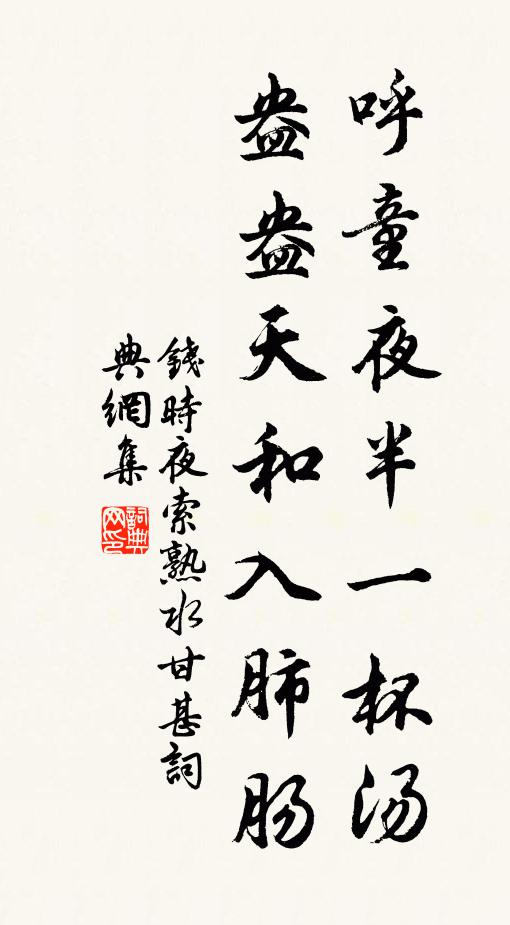 呼童夜半一杯汤
盎盎天和入肺肠
錢時夜索熟水甘甚詞
典網集
詞典网印